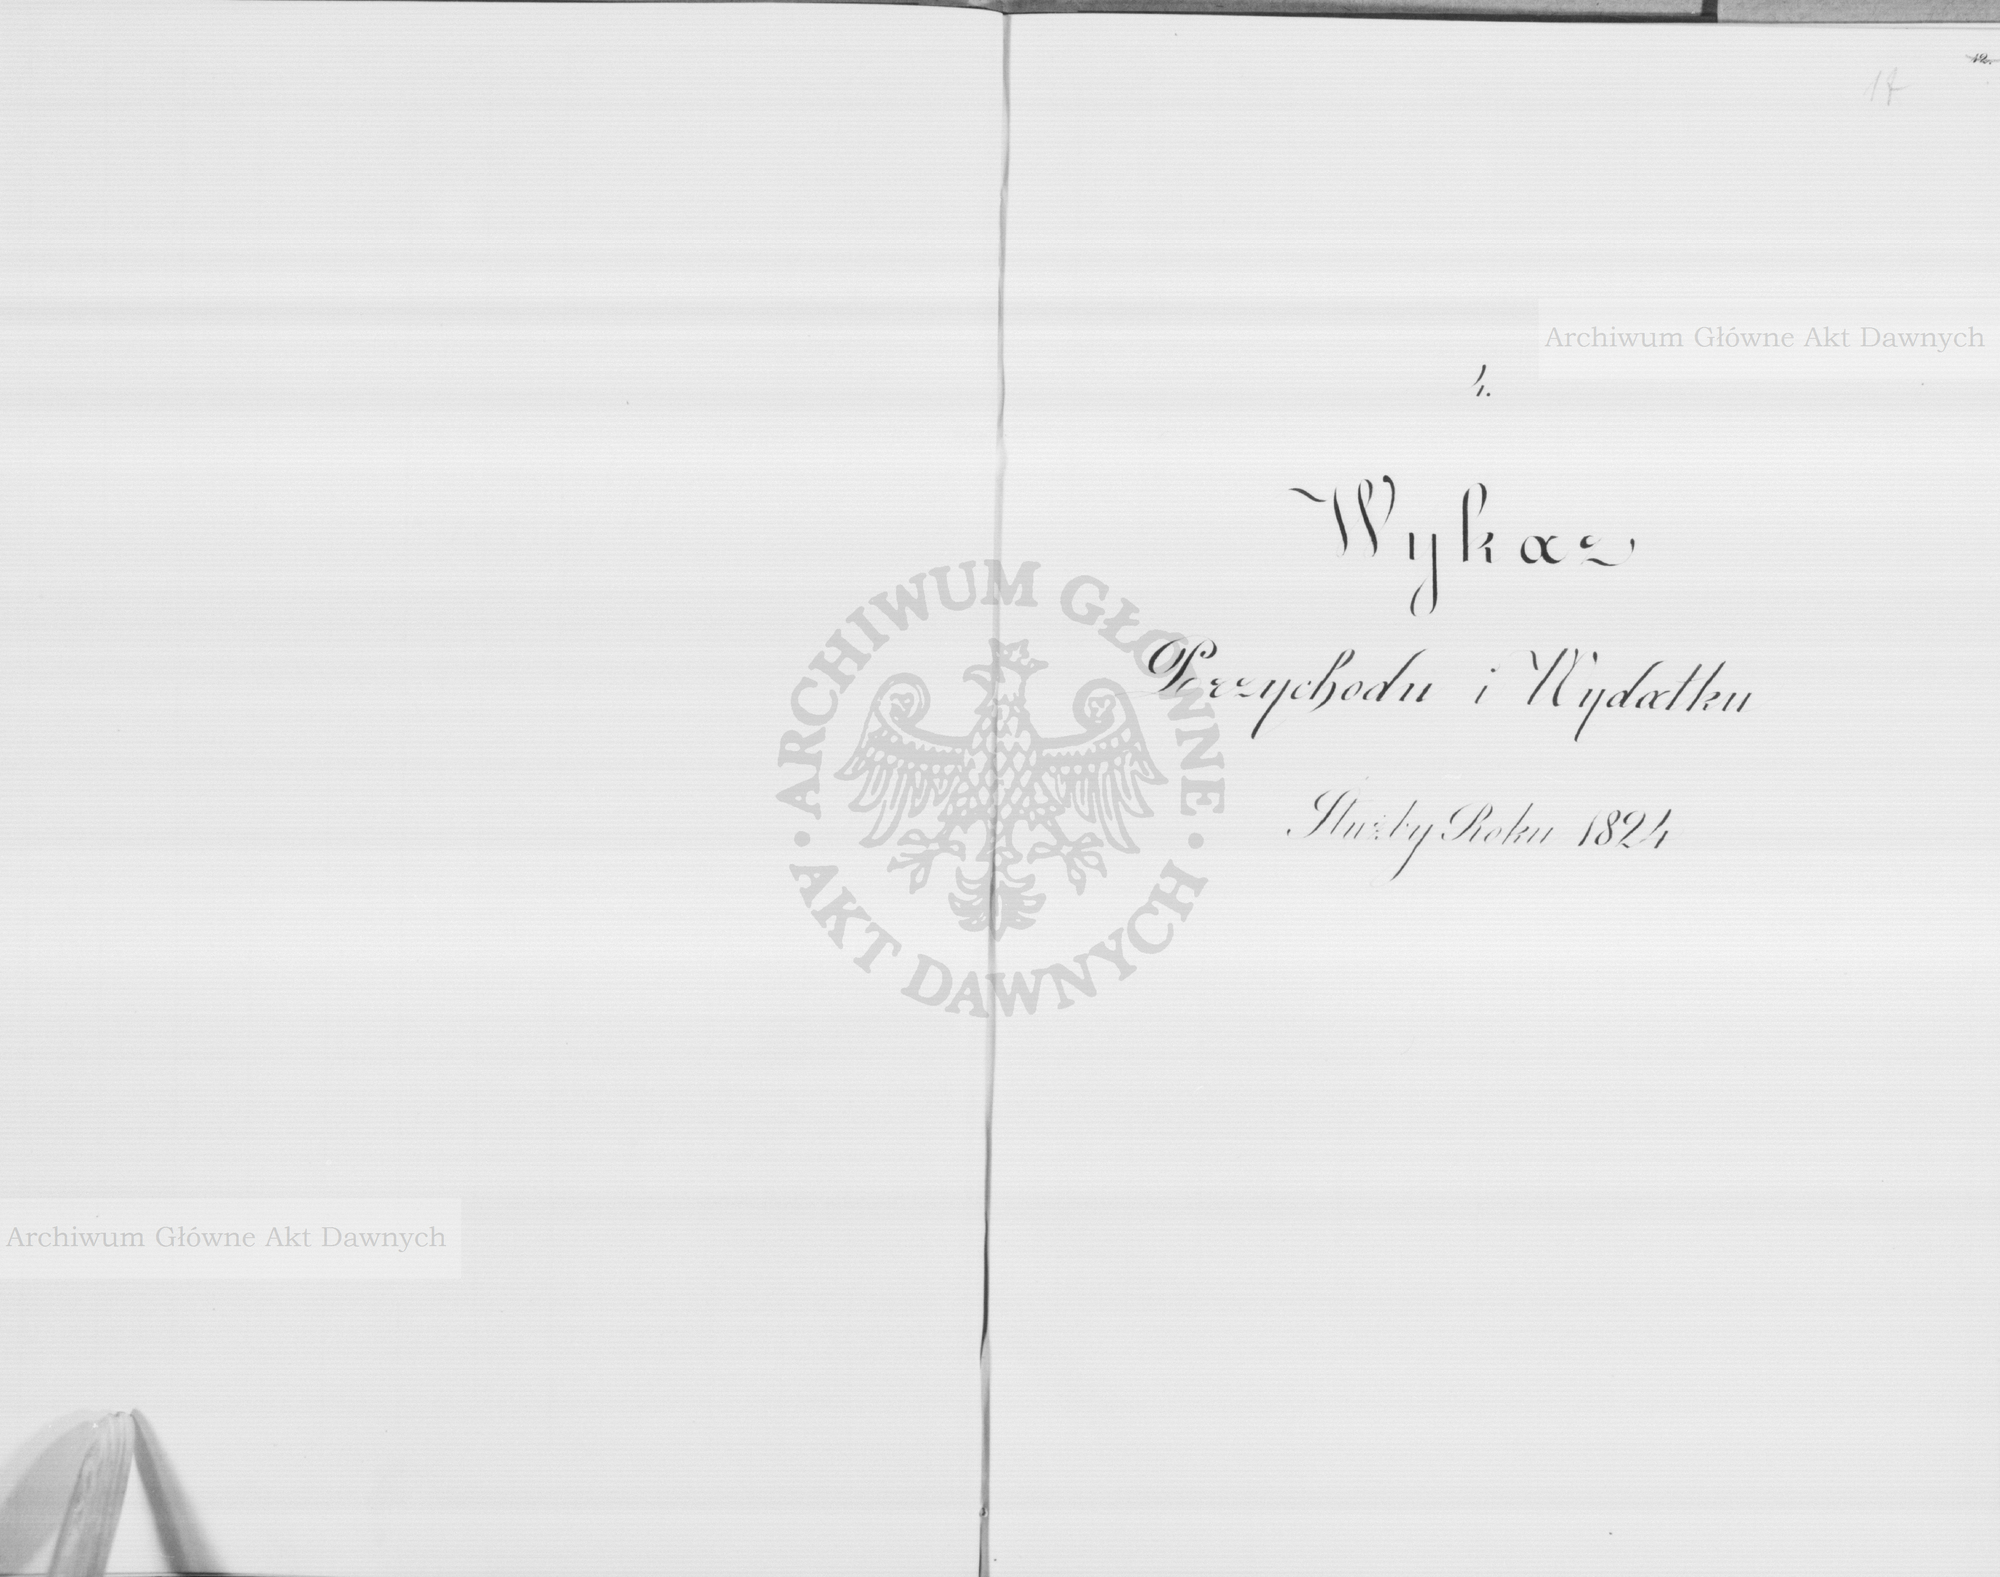 12.
17
Archiwum Główne Akt Dawnych
4.
Wykaz
Przychodu i Wydatku
Służby Roku 1824
ARCHIWUM GŁÓWNE
AKT DAWNYCH
Archiwum Główne Akt Dawnych